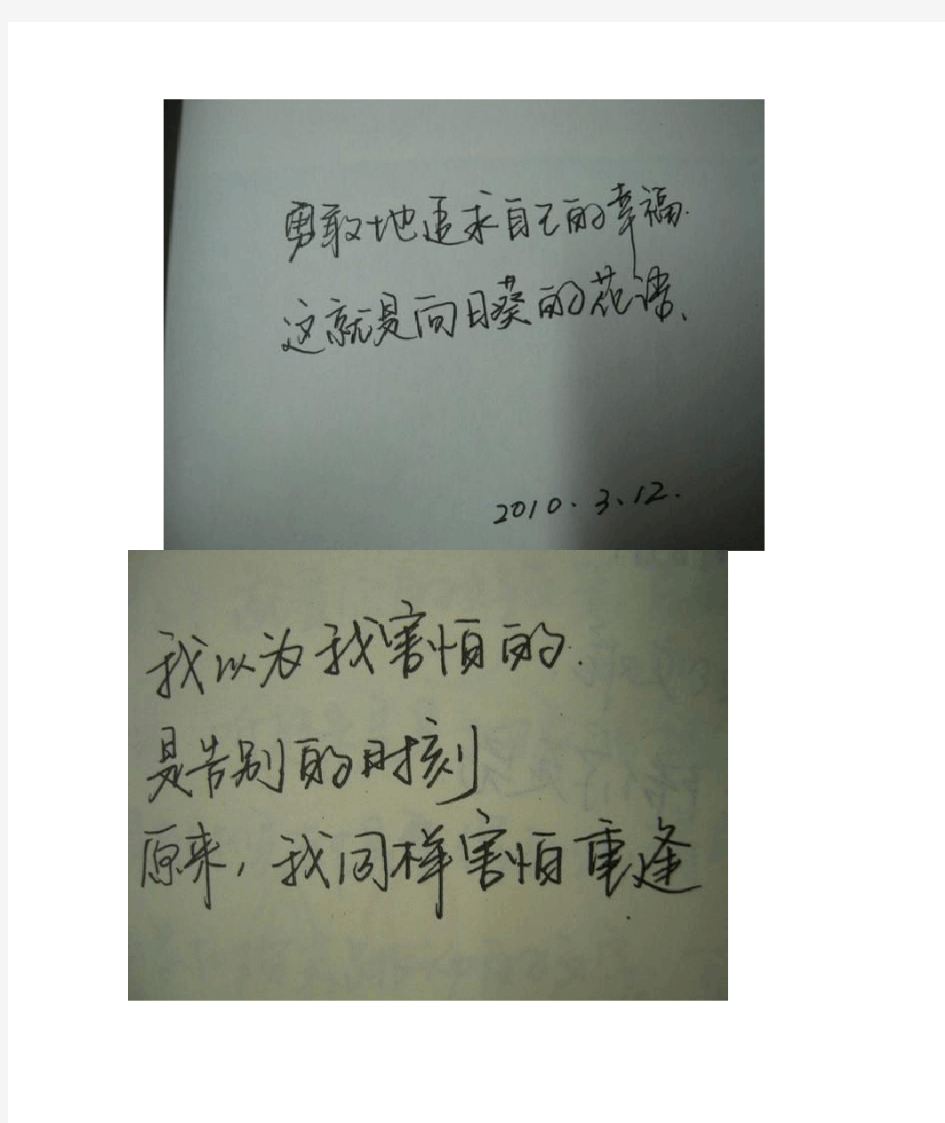 勇敢地追求自己的幸福.
这就是向日葵的花语、
2010.3.12.
我以为我害怕的.
是告别的时刻
原来,我同样害怕重逢